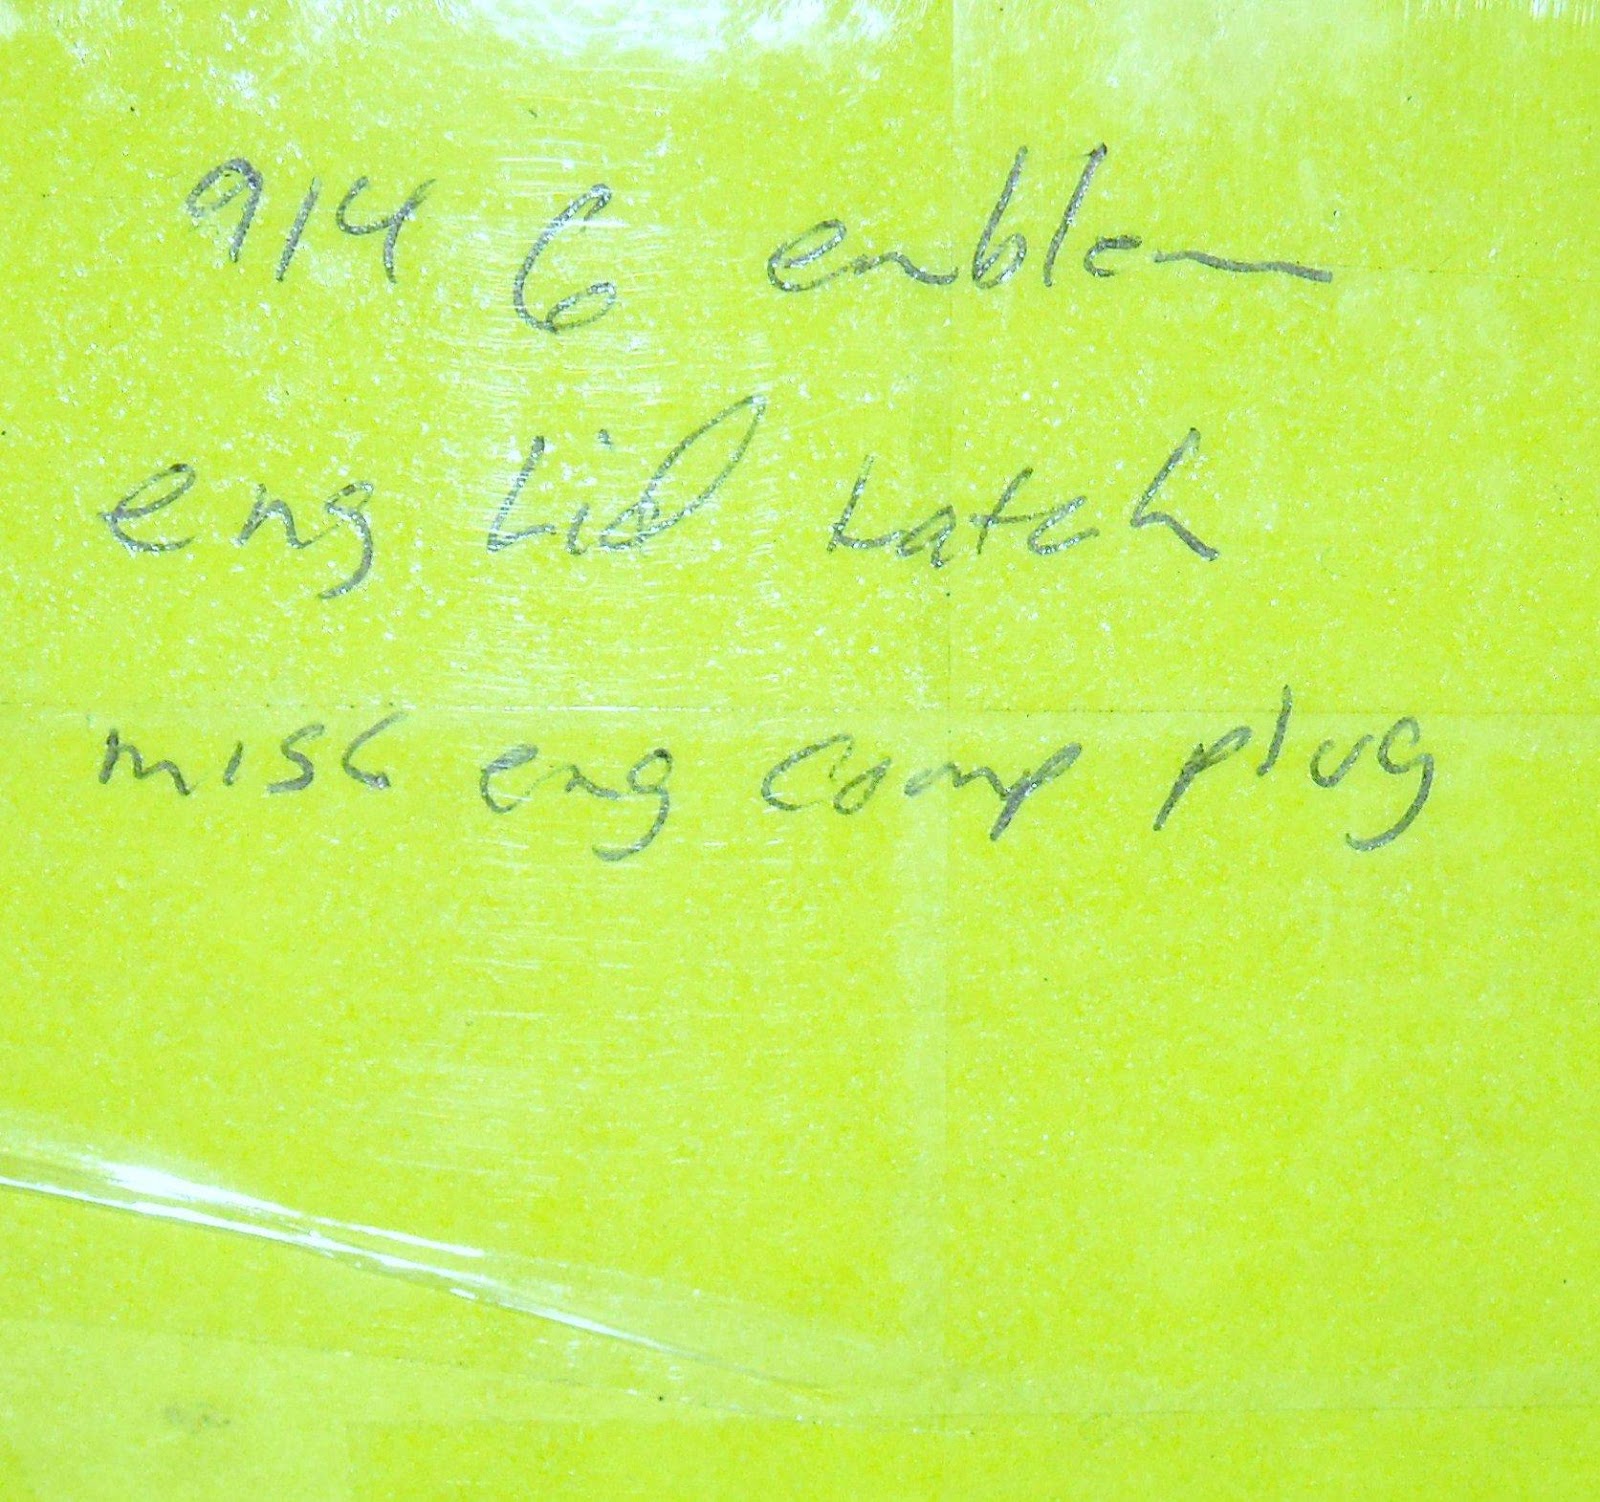 914 6 emblem
eng Lid Latch
misc eng comp plug